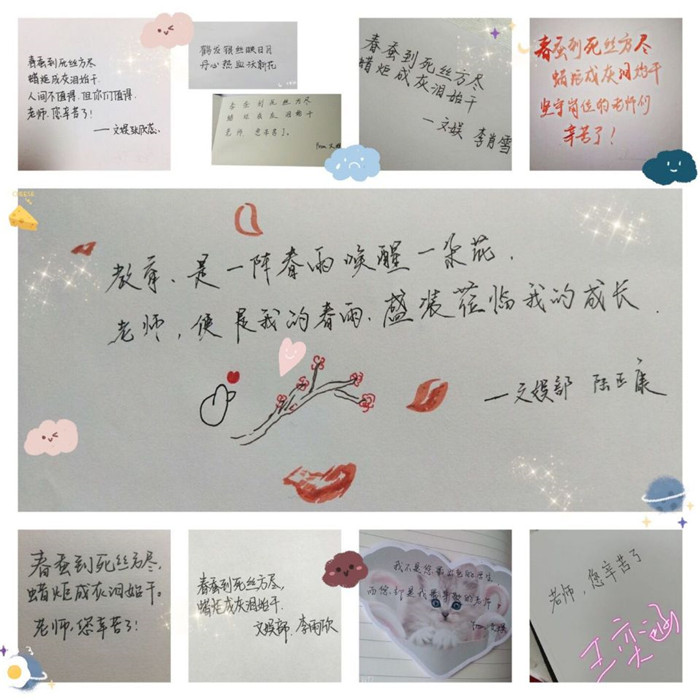 春蚕到死丝方尽
蜡炬成灰泪始干.
人间不值得.但你们值得.
老师.您辛苦了!
——文娱
鹤发银丝映日月
丹心热血沃新花
春蚕到死丝方尽
蜡炬成灰泪始干
老师 您辛苦了.
from 文娱
春蚕到死丝方尽
蜡炬成灰泪始干
——文娱 李肖雪
春蚕到死丝方尽
蜡炬成灰泪始干
坚守岗位的老师们
辛苦了!
CHEESE
教育、是一阵春雨唤醒一朵花.
老师,便是我的春雨.盛装莅临我的成长.
——文娱部 陆正康
春蚕到死丝方尽,
蜡炬成灰泪始干。
老师,您辛苦了!
春蚕到死丝方尽,
蜡炬成灰泪始干.
文娱部.李雨欣
我不是您最出色的学生
而您却是我最尊敬的老师
from 文娱
老师,您辛苦了
王奕涵